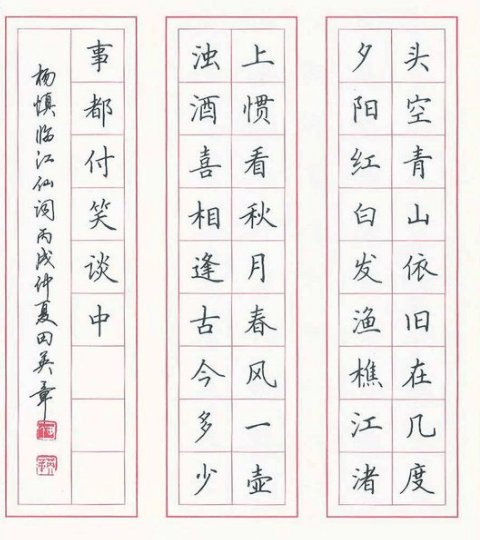 头空青山依旧在几度
夕阳红白发渔樵江渚
上惯看秋月春风一壶
浊酒喜相逢古今多少
事都付笑谈中
杨慎临江仙词丙戌仲夏田英章